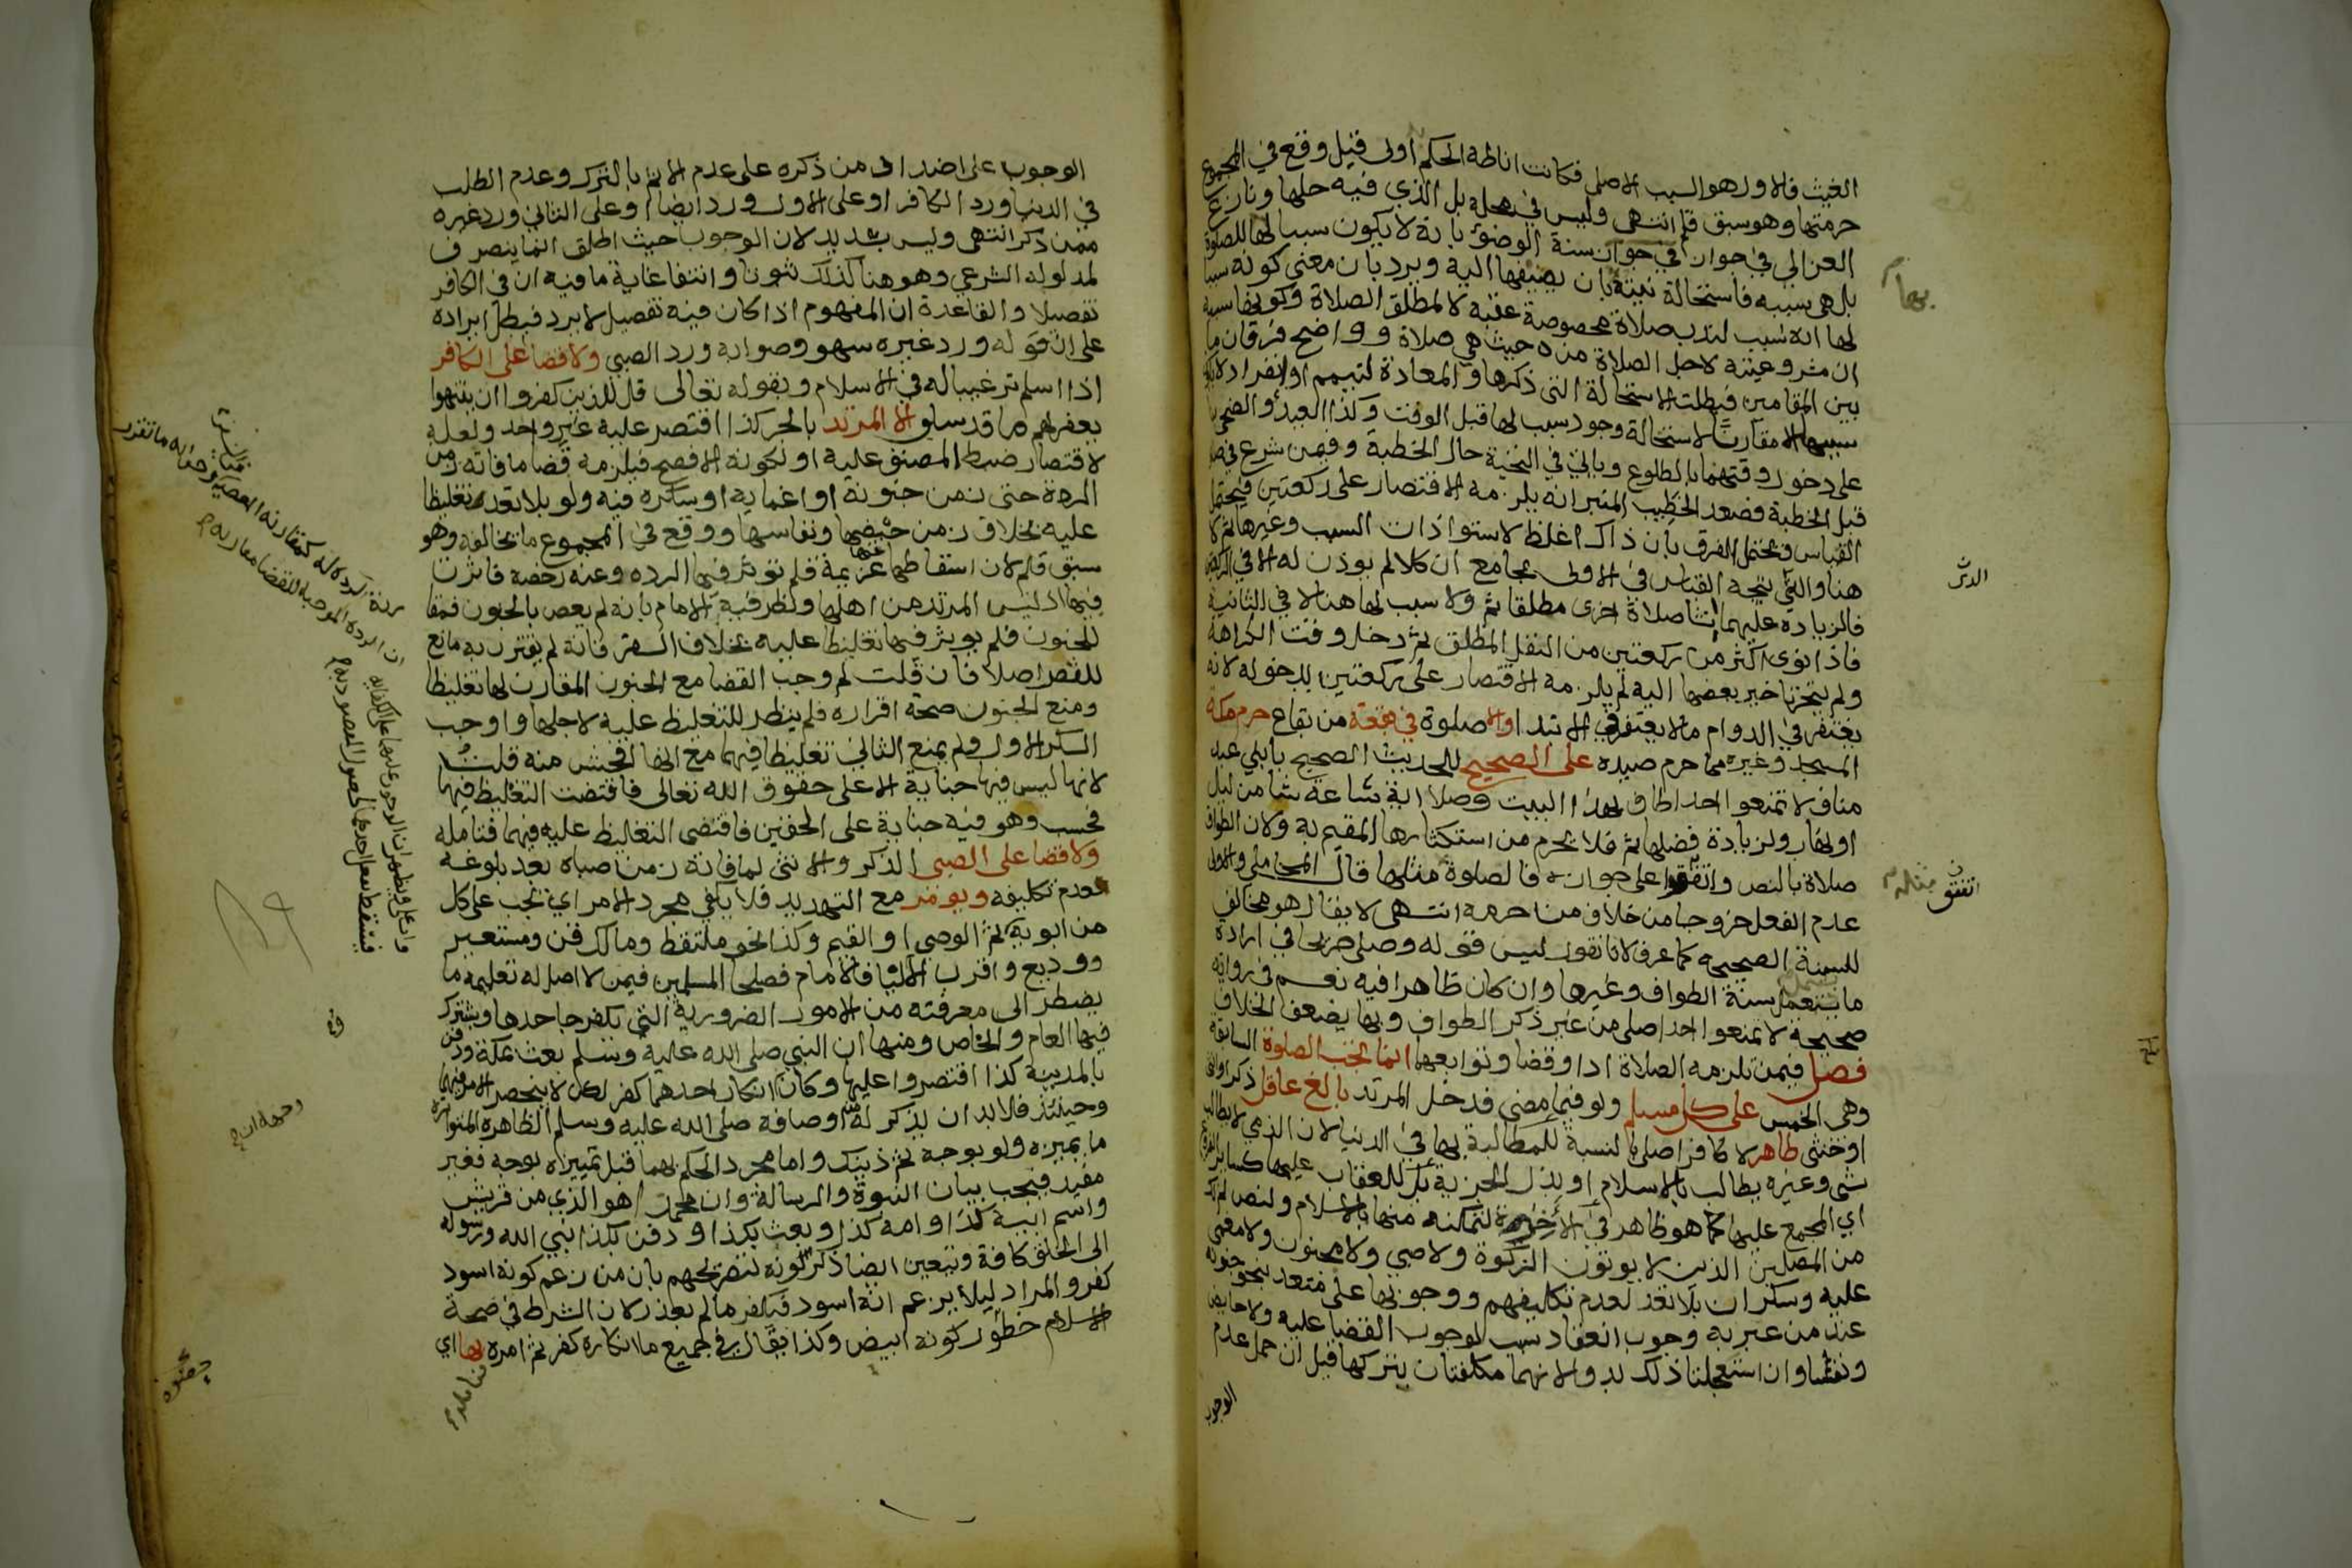 الغيث فالاول هو السبب الاصلي فكانت اناطة الحكم اولى قيل وقع في المجموع
حرمتها وهو سبق قلم انتهى وليس في محله بل الذي فيه حلها ونازع
الغزالي في جواز في جواز سنة الوضوء بانه لا يكون سببا لها للصلوة
بل هي سببه فاستحالة نيته بان يضيفها اليه ويرد بان معنى كونه سببا
لها انه سبب لندب صلاة مخصوصة عقبه لا لمطلق الصلاة وكونها سببه
ان مشروعيته لاجل الصلاة من حيث هي صلاة وواضح فرقان ما
بين المقامين فبطلت الاستحالة التي ذكرها والمعادة لتيمم او انفراد
سببها الا مقارنا لاستحالة وجود سبب لها قبل الوقت وكذا العيد والضحى
على دخول وقتهما بالطلوع وياتي في التحية حال الخطبة وفيمن شرع في
قبل الخطبة فصعد الخطيب المنبر انه يلزمه الاقتصار على ركعتين فيحتمل
القياس ويحتمل الفرق بان ذاك اغلظ لاستواء ذات السبب وغيرها ثم لا
هنا والذي يتجه القياس في الاولى بجامع ان كلا لم يوذن له الا في
فالزيادة عليهما انشا صلاة اخرى مطلقا ثم ولا سبب لها هنا لا في الثانية
فاذا نوى اكثر من ركعتين من النفل المطلق ثم دخل وقت الكراهة
ولم يتحر تاخير بعضها اليه لم يلزمه الاقتصار على ركعتين لدخوله لانه
يغتفر في الدوام ما لا يغتفر في الابتداء والا صلوة في بقعة من بقاع حرم مكة
المسجد وغيره مما حرم صيده على الصحيح للحديث الصحيح يا بني عبد
مناف لا تمنعوا احدا طاف بهذا البيت وصلى اية ساعة شا من ليل
او نهار ولزيادة فضلها ثم فلا يحرم من استكثارها المقيم به ولان الطواف
صلاة بالنص واتفقوا على جوازه فالصلوة مثلها قال المحاملي والاولى
عدم الفعل خروجا من خلاف من حرمه انتهى لا يقال هو مخالف
للسنة الصحيحة كما عرف لانا نقول ليس قوله وصلى صريحا في ارادة
ما يشمل سنة الطواف وغيرها وان كان ظاهرا فيه نعم في رواية
صحيحة لا تمنعوا احدا صلى من غير ذكر الطواف وبها يضعف الخلاف
فصل فيمن تلزمه الصلاة ادا وقضا وتوابعها انما تجب الصلوة السابقة
وهي الخمس على كل مسلم ولو فيما مضى فدخل المرتد بالغ عاقل ذكر او انثى
او خنثى طاهر لا كافر اصلي بالنسبة للمطالبة بها في الدنيا لان الذمي لا يطالب
شي وغيره يطالب بالاسلام او بذل الجزية بل للعقاب عليها كسائر
اي المجمع عليها كما هو ظاهر في الاخرة لتمكنه منها بالاسلام ولنص لم نك
من المصلين الذين لا يوتون الزكوة ولا صبي ولا مجنون ولا مغمى
عليه وسكران بلا تعد لعدم تكليفهم ووجوبها على متعد بنحو جنونه
عند من عبر به وجوب انعقاد سبب لوجوب القضا عليه ولا حايض
ونفسا وان استعجلتا ذلك بدواء لانهما مكلفتان بتركها قبل ان حمل عدم
الوجوب
بها م
الدش
اتفقو
الوجوب على اضداد من ذكره على عدم الاثم بالترك وعدم الطلب
في الدنيا ورد الكافر او على الاول ورد ايضا او على الثاني ورد غيره
ممن ذكر انتهى وليس بسديد لان الوجوب حيث اطلق انما ينصرف
لمدلوله الشرعي وهو هنا كذلك ثبوتا وانتفا غاية ما فيه ان في الكافر
تفصيلا والقاعدة ان المفهوم اذا كان فيه تفصيل لا يرد فبطل ايراده
على ان قوله ورد غيره سهو وصوابه ورد الصبي ولا قضا على الكافر
اذا اسلم ترغيبا له في الاسلام ولقوله تعالى قل للذين كفروا ان ينتهوا
يغفر لهم ما قد سلف الا المرتد بالجر كذا اقتصر عليه غير واحد ولعله
لاقتصار ضبط المصنف عليه او لكونه الافصح فيلزمه قضا ما فاته زمن
الردة حتى زمن جنونه او اغمايه او سكره فيه ولو بلا تعد تغليظا
عليه بخلاف زمن حيضها ونفاسها ووقع في المجموع ما يخالفه وهو
سبق قلم لان اسقاطها عنها عزيمة فلم توثر فيها الردة وعنه رخصة فاثرت
فيها اذ ليس المرتد من اهلها ونظر فيه الامام بانه لم يعص بالجنون فمقا
للجنون فلم يوثر فيها تغليظا عليه بخلاف السفر فانه لم يقترن به مانع
للقصر اصلا فان قلت لم وجب القضا مع الجنون المقارن لها تغليظا
ومنع الجنون صحة اقراره فلم ينظر للتغليظ عليه لاجلها واوجب
السكر الاول ولم يمنع الثاني تغليظا فيهما مع انها افحش منه قلت
لانها ليس فيها جناية الا على حقوق الله تعالى فاقتضت التغليظ فيها
فحسب وهو فيه جناية على الحقين فاقتضى التغليظ عليه فيهما فتامله
ولا قضا على الصبي الذكر والانثى لما فاته زمن صباه بعد بلوغه
لعدم تكليفه ويومر مع التهديد فلا يكفي مجرد الامر اي تجب على كل
من ابويه ثم الوصي او القيم وكذا نحو ملتقط ومالك قن ومستعير
ووديع واقرب الاوليا فالامام فصلحا المسلمين فيمن لا اصل له تعليمه ما
يضطر الى معرفته من الامور الضرورية التي يكفر جاحدها ويشترك
فيها العام والخاص ومنها ان النبي صلى الله عليه وسلم بعث بمكة ودفن
بالمدينة كذا اقتصروا عليها وكان انكار احدهما كفر لكن لا ينحصر الامر فيهما
وحينئذ فلا بد ان يذكر له من اوصافه صلى الله عليه وسلم الظاهرة المتواترة
ما يميزه ولو بوجه ثم ذينك واما مجرد الحكم بهما قبل تمييزه بوجه فغير
مفيد فيجب بيان النبوة والرسالة وان محمدا هو الذي من قريش
واسم ابيه كذا وامه كذا وبعث بكذا ودفن بكذا نبي الله ورسوله
الى الخلق كافة ويتعين ايضا ذكر لونه لتصريحهم بان من زعم كونه اسود
كفر والمراد ليلا يزعم انه اسود فيكفر ما لم يعذر لان الشرط في صحة
الاسلام خطور كونه ابيض وكذا يقال في جميع ما انكاره كفر ثم امره بها اي